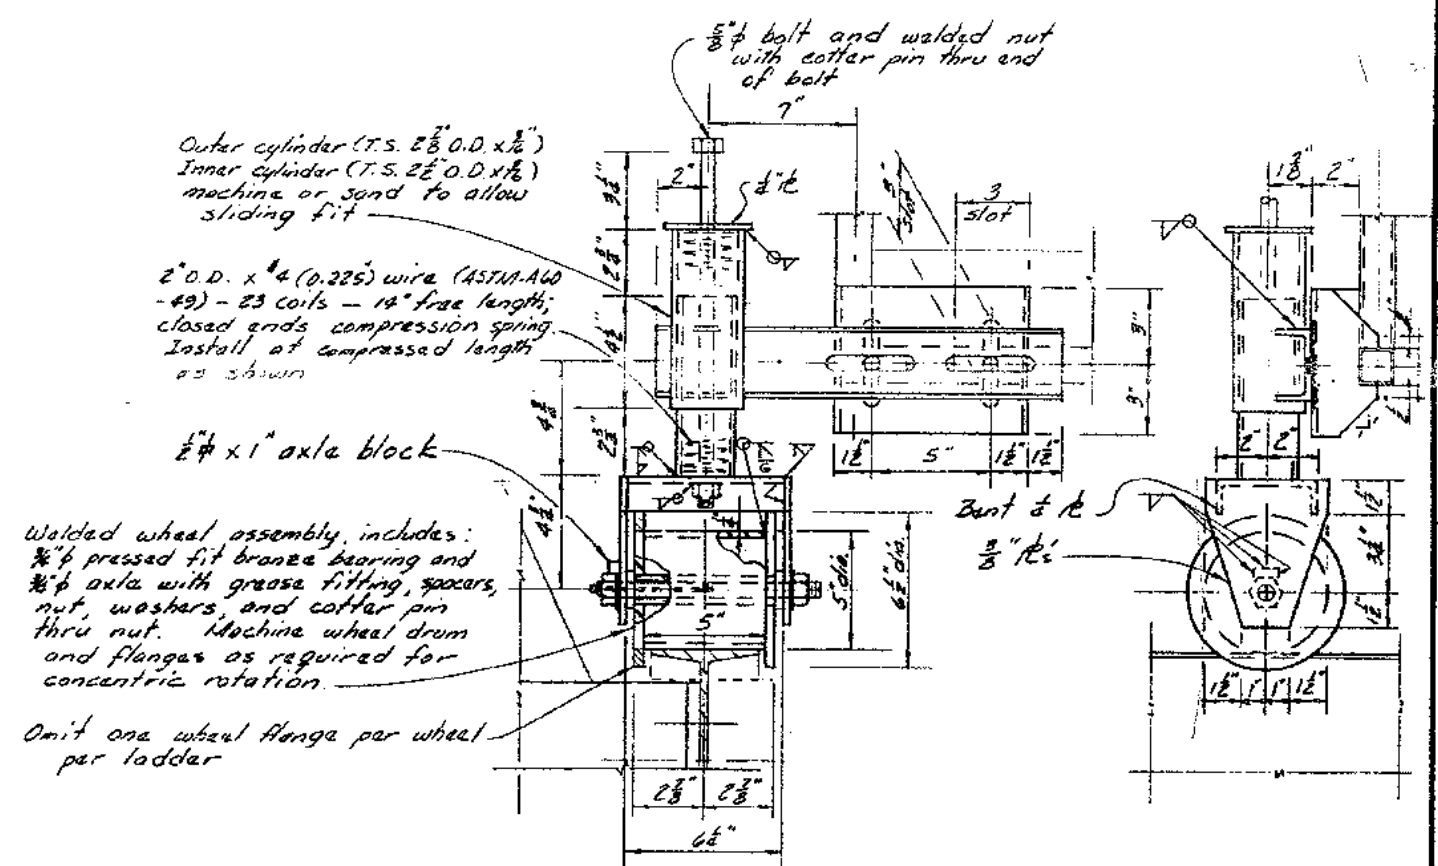 5/8"φ bolt and welded nut
with cotter pin thru end
of bolt
7"
Outer cylinder (T.S. 2 7/8" O.D. x 3/16")
Inner cylinder (T.S. 2 1/2" O.D. x 3/16)
machine or sand to allow
sliding fit
2"
3
slot
slot
1 7/8"
2"
2" O.D. x #4 (0.225") wire (ASTM-A60
-49) - 23 coils - 14" free length;
closed ends compression spring.
Install at compressed length
as shown
3"
3"
1/2"φ x 1" axle block
1 1/2"
5"
1 1/2"
1 1/2"
2"
2"
Bent 1/4 ℞
3/8" ℞'s
1 1/2"
3 1/2"
1 1/2"
Welded wheel assembly, includes:
3/4"φ pressed fit bronze bearing and
3/4"φ axle with grease fitting, spacers,
nut, washers, and cotter pin
thru nut. Machine wheel drum
and flanges as required for
concentric rotation.
5"
5" dia.
6 1/2" dia.
1 1/2"
1"
1"
1 1/2"
Omit one wheel flange per wheel
per ladder
2 7/8"
2 7/8"
6 1/4"